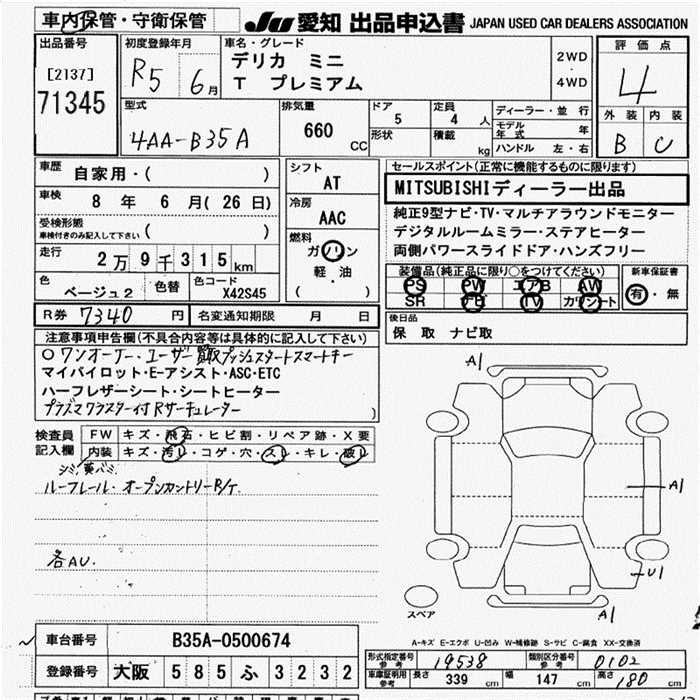 車内保管・守衛保管
JU 愛知 出品申込書 JAPAN USED CAR DEALERS ASSOCIATION
出品番号
[2137]
71345
初度登録年月
R5 6月
車名・グレード
デリカ ミニ
T プレミアム
2WD
・
4WD
評価点
4
外装 内装
B C
型式
4AA-B35A
排気量
660 CC
ドア 5
形状
定員 4 人
積載 kg
ディーラー・並行
モデル年式 年
ハンドル 左・右
車歴
自家用・( )
車検
8 年 6 月(26日)
受検形態
車検付きのみ記入して下さい ( )
走行
2万9千315km
色
ベージュ2
色替
色コード
X42S45
シフト
AT
冷房
AAC
燃料
ガソリン
軽・油
( )
セールスポイント(正常に機能するものに限ります)
MITSUBISHIディーラー出品
純正9型ナビ・TV・マルチアラウンドモニター
デジタルルームミラー・ステアヒーター
両側パワースライドドア・ハンズフリー
装備品(純正品に限り○をつけてください)
PS PW エアB AW
SR ナビ TV カワシート
新車保証書
有・無
R券 7340円
名変通知期限 月 日
後日品
保 取 ナビ取
注意事項申告欄(不具合内容等は具体的に記入して下さい)
○ワンオーナー・ユーザー買取プッシュスタートスマートキー
マイパイロット・E-アシスト・ASC・ETC
ハーフレザーシート・シートヒーター
プラズマクラスター付Rサーキュレーター
)
検査員
記入欄
FW キズ・飛石・ヒビ割・リペア跡・X要
内装 キズ・汚レ・コゲ・穴・スレ・キレ・破レ
ルーフレール・オープンカントリーR/T.
各AU.
A1
A1
U1
A1
スペア
A-キズ E-エクボ U-凹み W-補修跡 S-サビ C-腐食 XX-交換済
車台番号 B35A-0500674
登録番号 大阪 585 ふ 3232
形式指定番号 参考 19538
類別区分番号 参考 0102
車庫証明用 参考 長さ 339 cm 幅 147 cm 高さ 180 cm